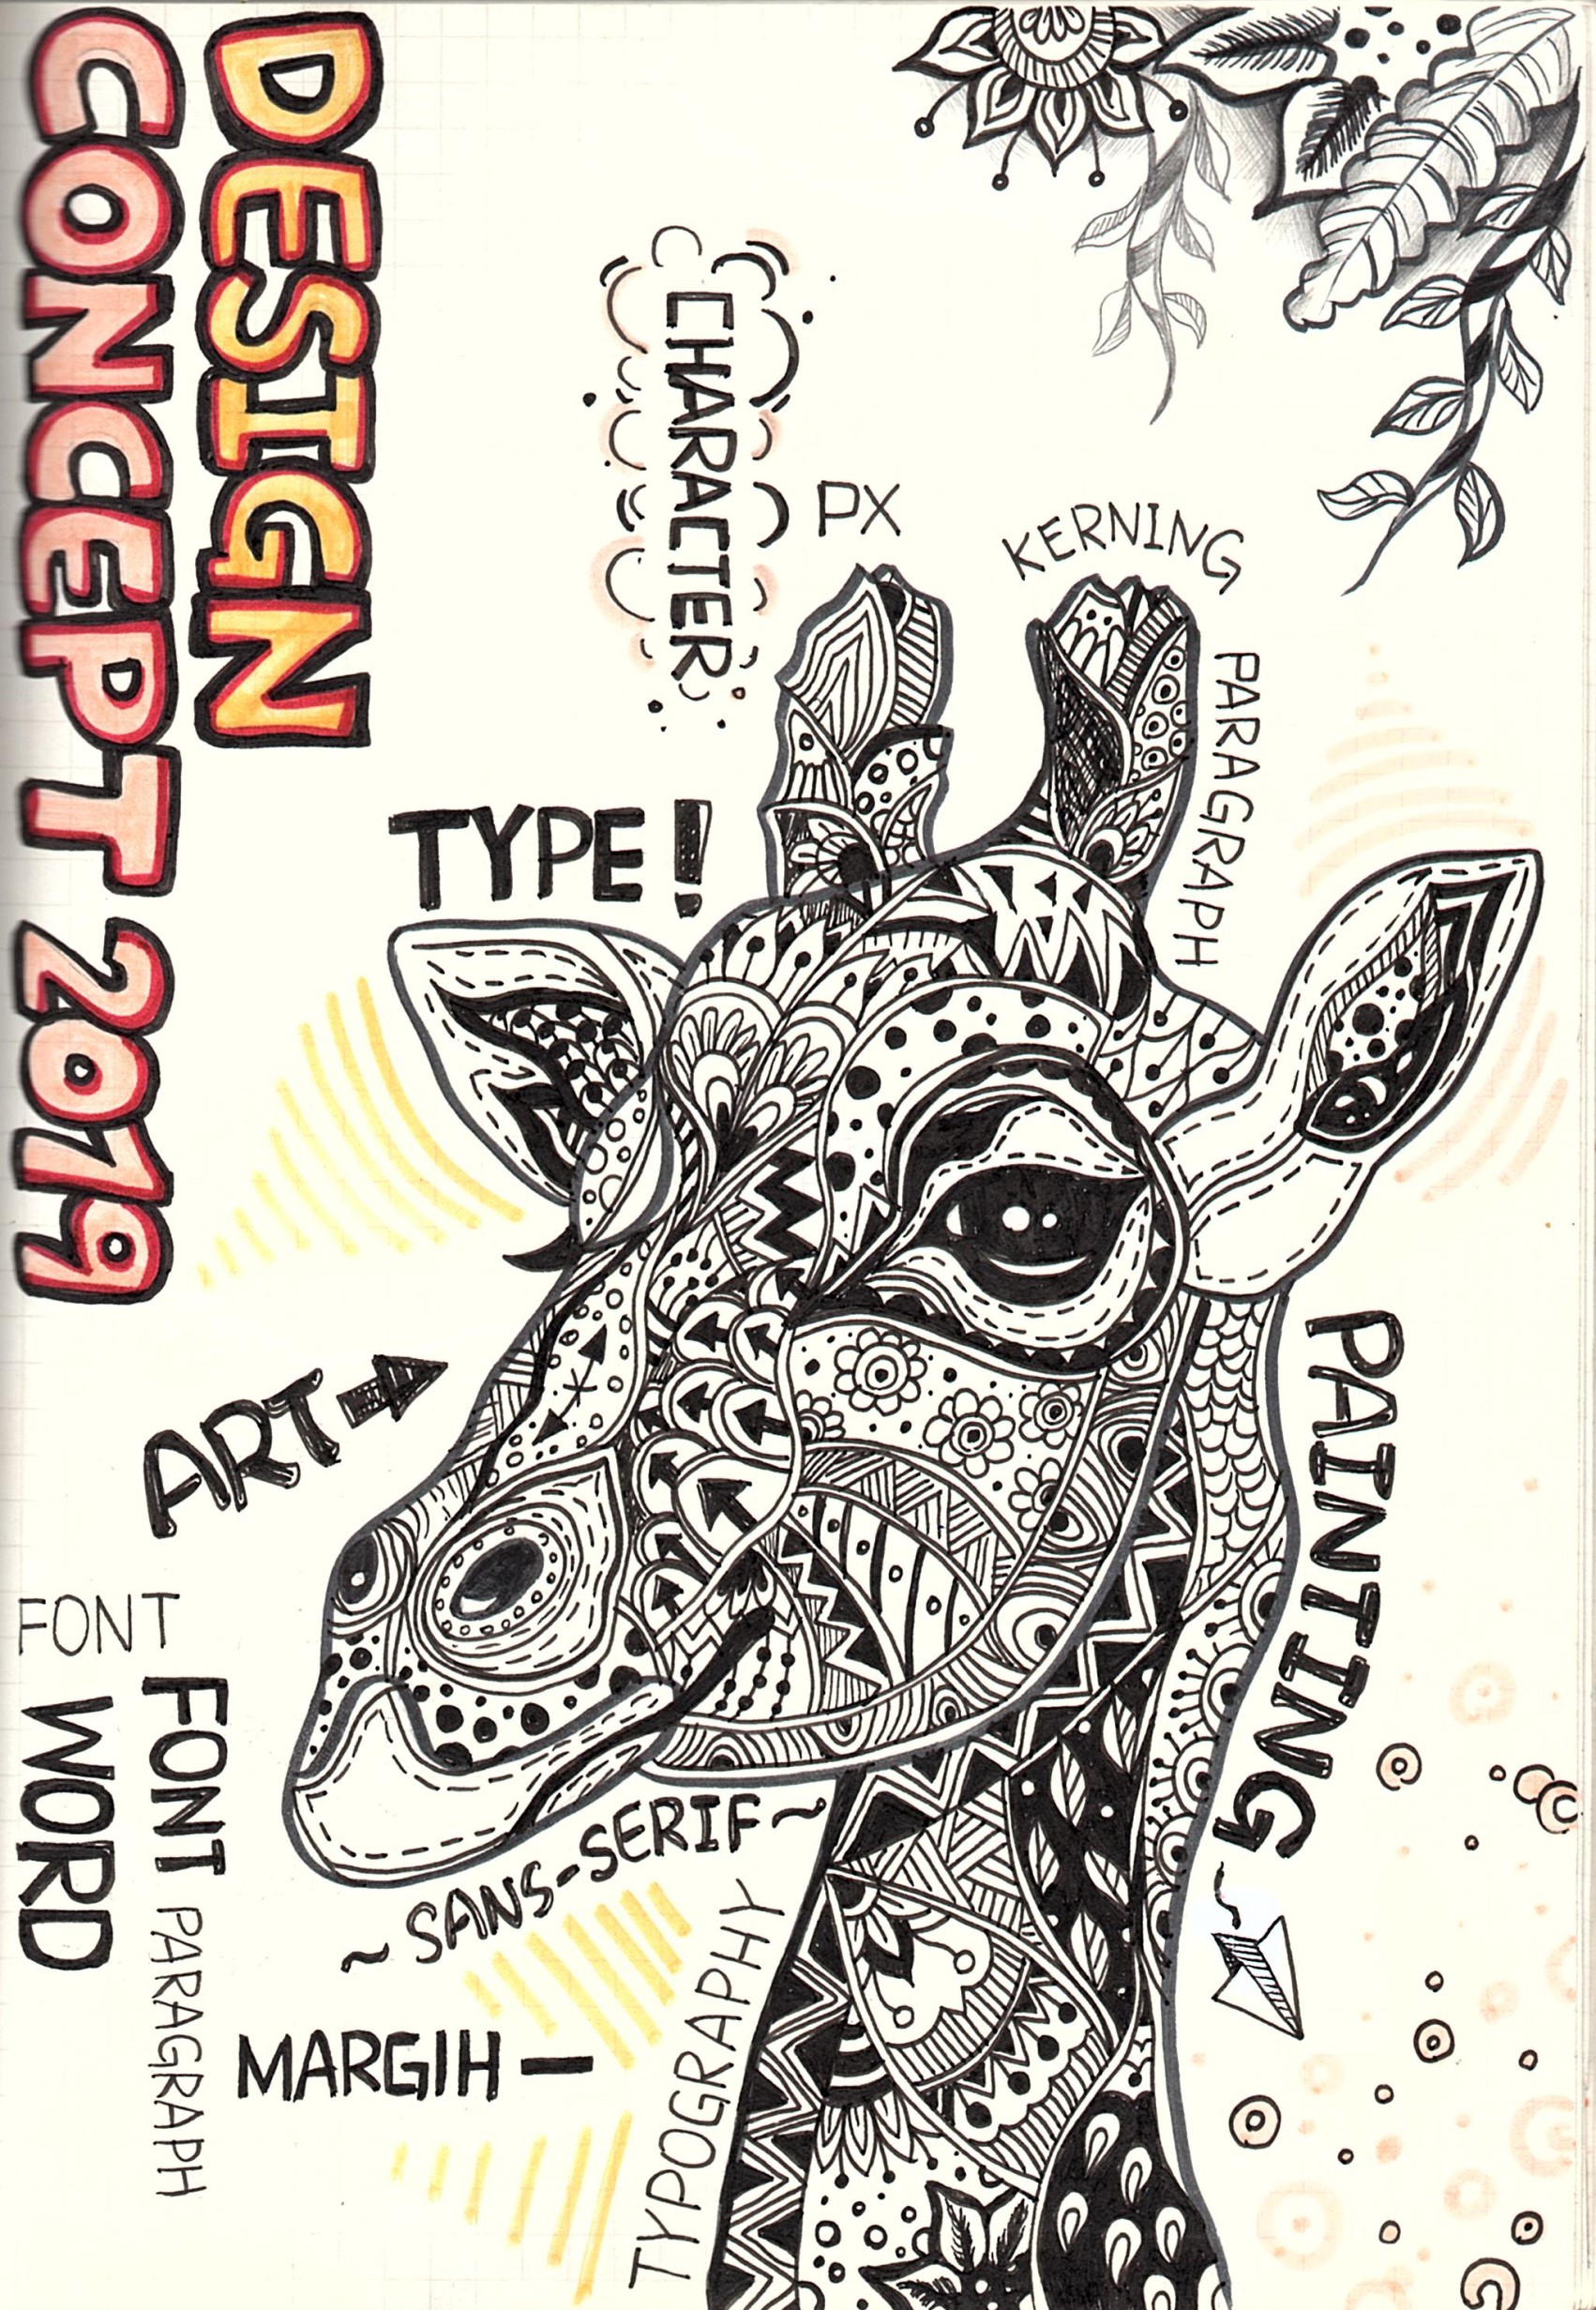 DESIGN
CONCEPT 2019
CHARACTER
PX
KERNING
PARAGRAPH
TYPE!
ART
PAINTING
FONT
FONT PARAGRAPH
WORD
~SANS-SERIF~
MARGIH—
TYPOGRAPHY